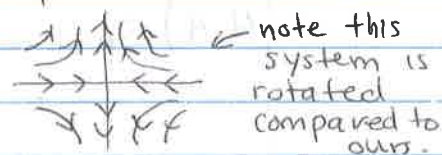 note this
system is
rotated
compared to
ours.